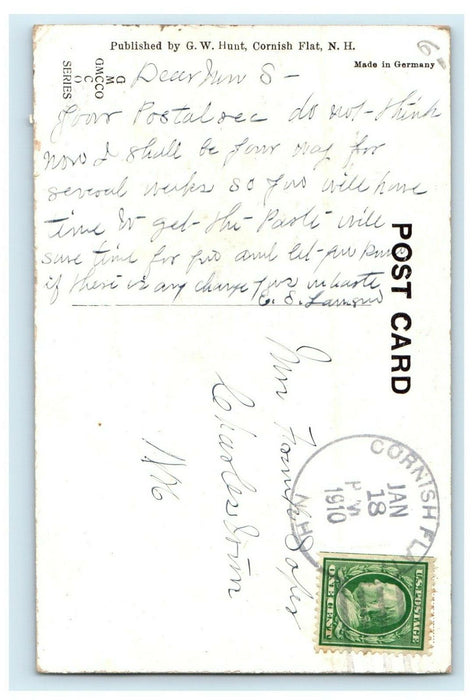 Published by G. W. Hunt, Cornish Flat, N. H.
Made in Germany
G M C O
GMCCO
SERIES
6-
Dear Mrs S -
Your Postal rec do not think
now I shall be your way for
several weeks so you will have
time to get the Parts will
save time for you and let you know
if there is any change yours in haste
POST CARD
Mrs
Charlestown
NH
CORNISH FLAT
JAN
18
P M
1910
N.H.
U.S. POSTAGE
ONE CENT